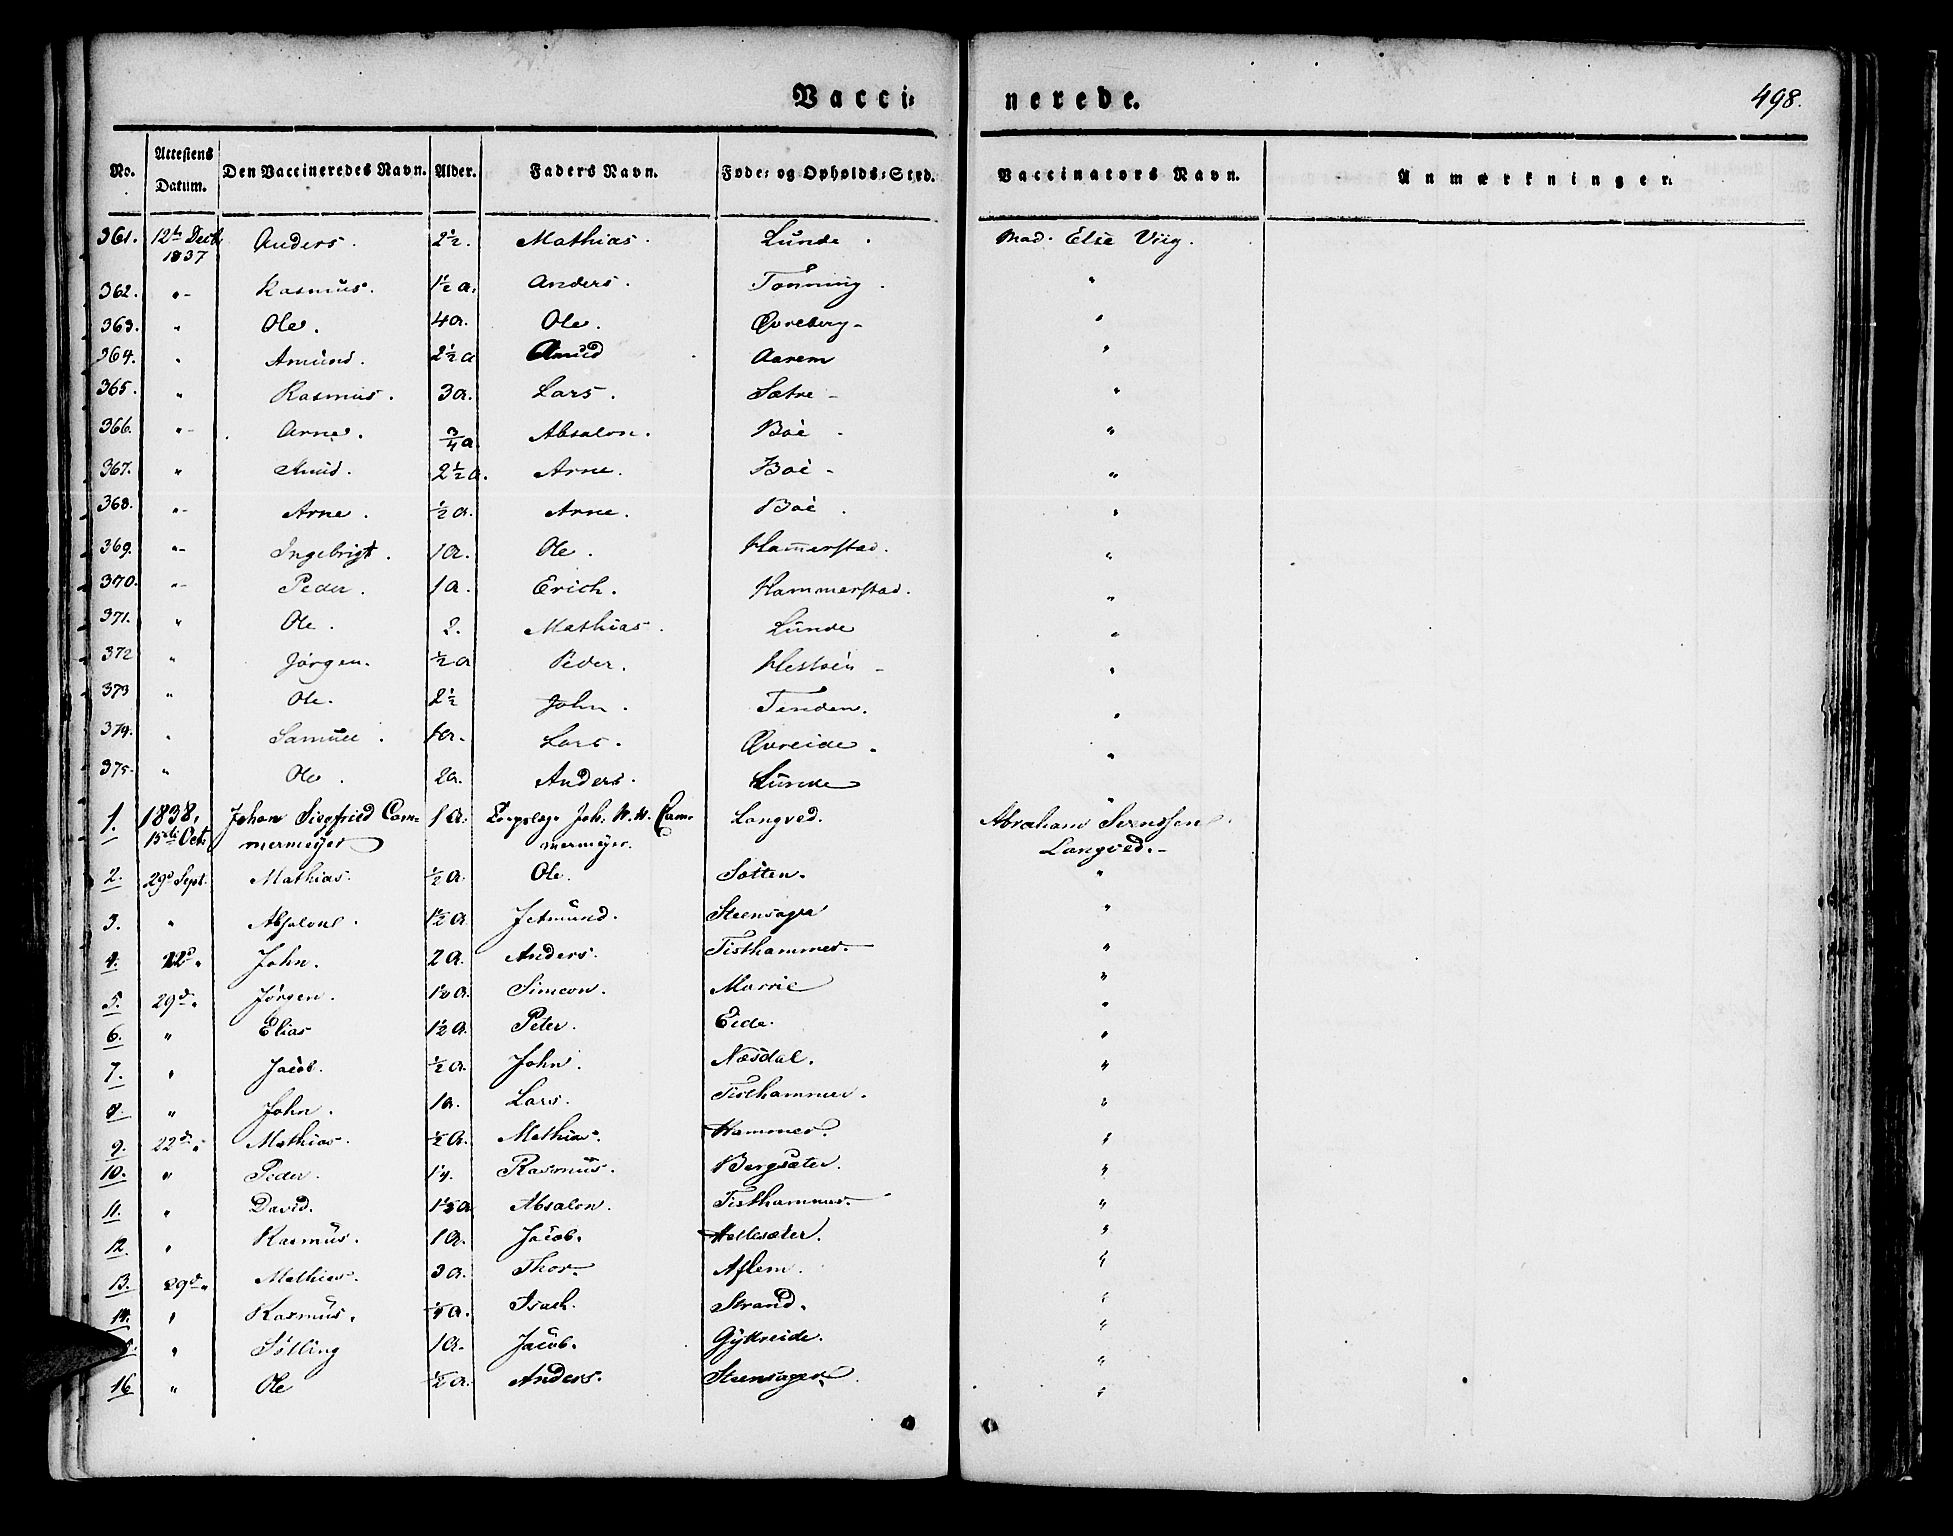 Vacci- nerede. 498.
No. Attestens Datum. Den Vaccineredes Navn. Alder. Faders Navn. Føde- og Opholds-Sted. Vaccinators Navn. Anmærkninger.
361. 12te Decb. 1837 Anders. 2½. Mathias. Lunde. Mad. Else Viig.
362. "- Rasmus. 1½ a. Anders. Tonning. "
363. " Ole. 4a. Ole. Øvreberg- "
364. " Amund. 2½ a Aarem "
365. " Rasmus. 3a. Lars. Sætre- "
366. "- Arne. ¾ a Absalon. Boë- "
367. " Knud. 2½ a. Arne. Boë- "
368. "- Arne. ½ a. Arne. Boë. "
369. "- Ingebrigt. 1a. Ole. Ham̄erstad. "
370. "- Peder. 1a. Erich. Hammerstad. "
371. " Ole. 2. Mathias. Lunde "
372 " Jörgen. ½ a Peder. "
373 " Ole. 2½ John. Tenden. "
374. " Samuel. 1a. Lars. Øvreide. "
375. " Ole. 2a. Anders. Lunde "
1. 1838, 15de Oct. Johan Siegfried Cam- 1a. Joh. Cam- Langved. Abraham Svenssen
mermeyer mermeyer. Langved.-
2. 29d Sept. Mathias. ½ a. Ole. Sotten. "
3. " Absalon. 1½ a. Jetmund. Steensager "
4. 22d " John. 2a. Anders. Tisthammer. "
5. 29d " Jörgen. 1½ a. Simeon. "
6. " Elias 1½ a. Peter. Eide. "
7. " Jacob. ½ a. John. Næsdal. "
8. " John. 1a. Lars. Tisthammer. "
9. 22d " Mathias. ½ a. Mathias. Hammer. "
10. " Peder. Rasmus. Bergsæter. "
11. " David. Absalon. Tisthammer. "
12. " Rasmus. 1a. Jacob. Hollesæter. "
13. 29d " Mathias. 3a. Thor- Aflem. "
14. " Rasmus. Isach. Strand. "
15. " Sölling 1a. Jacob. Gÿtreide. "
16 " Ole ½ a. Anders. Steensager. "